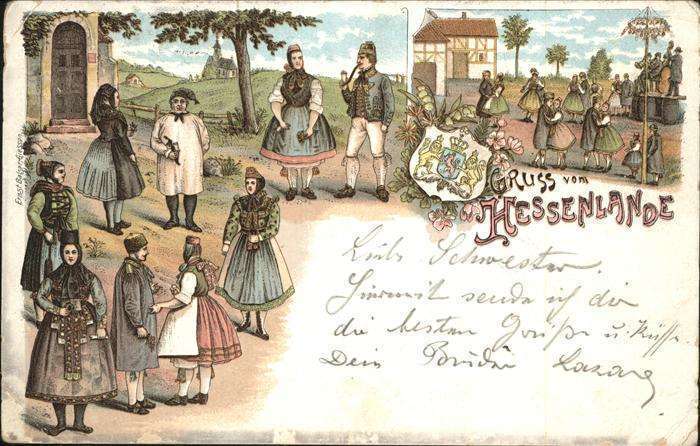 GRUSS vom
HESSENLANDE
Liebe Schwester.
Hiermit sende ich dir
die besten Grüße u. Küsse
Dein Bruder Lazarus